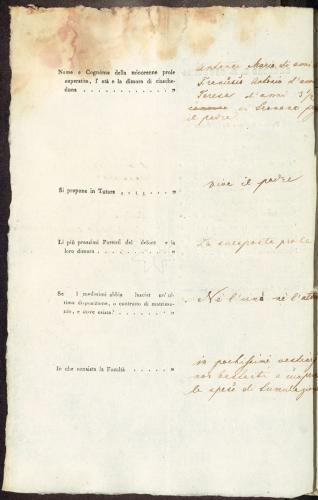 Nome e Cognome della minorenne prole
superstite, l' età e la dimora di ciasche-
duna . . . . . . . . . . . . "
Antonio Maria di anni
Francesco Antonio d'anni
Teresa d'anni 3 1/2
in
il padre
Si propone in Tutore . . . . . . . "
Vive il padre
Li più prossimi Parenti del defore e la
loro dimora . . . . . . . . . . "
La suesposta prole
Se i medesimi abbia lasciat un' ul-
tima disposizione, o contratto di matrimo-
nio, e dove esista? . . . . . . . "
Nè l'uno nè l'altro
In che consista la Facoltà . . . . . . "
in pochissimi vestiari
non bastanti a
le spese di tumulazione